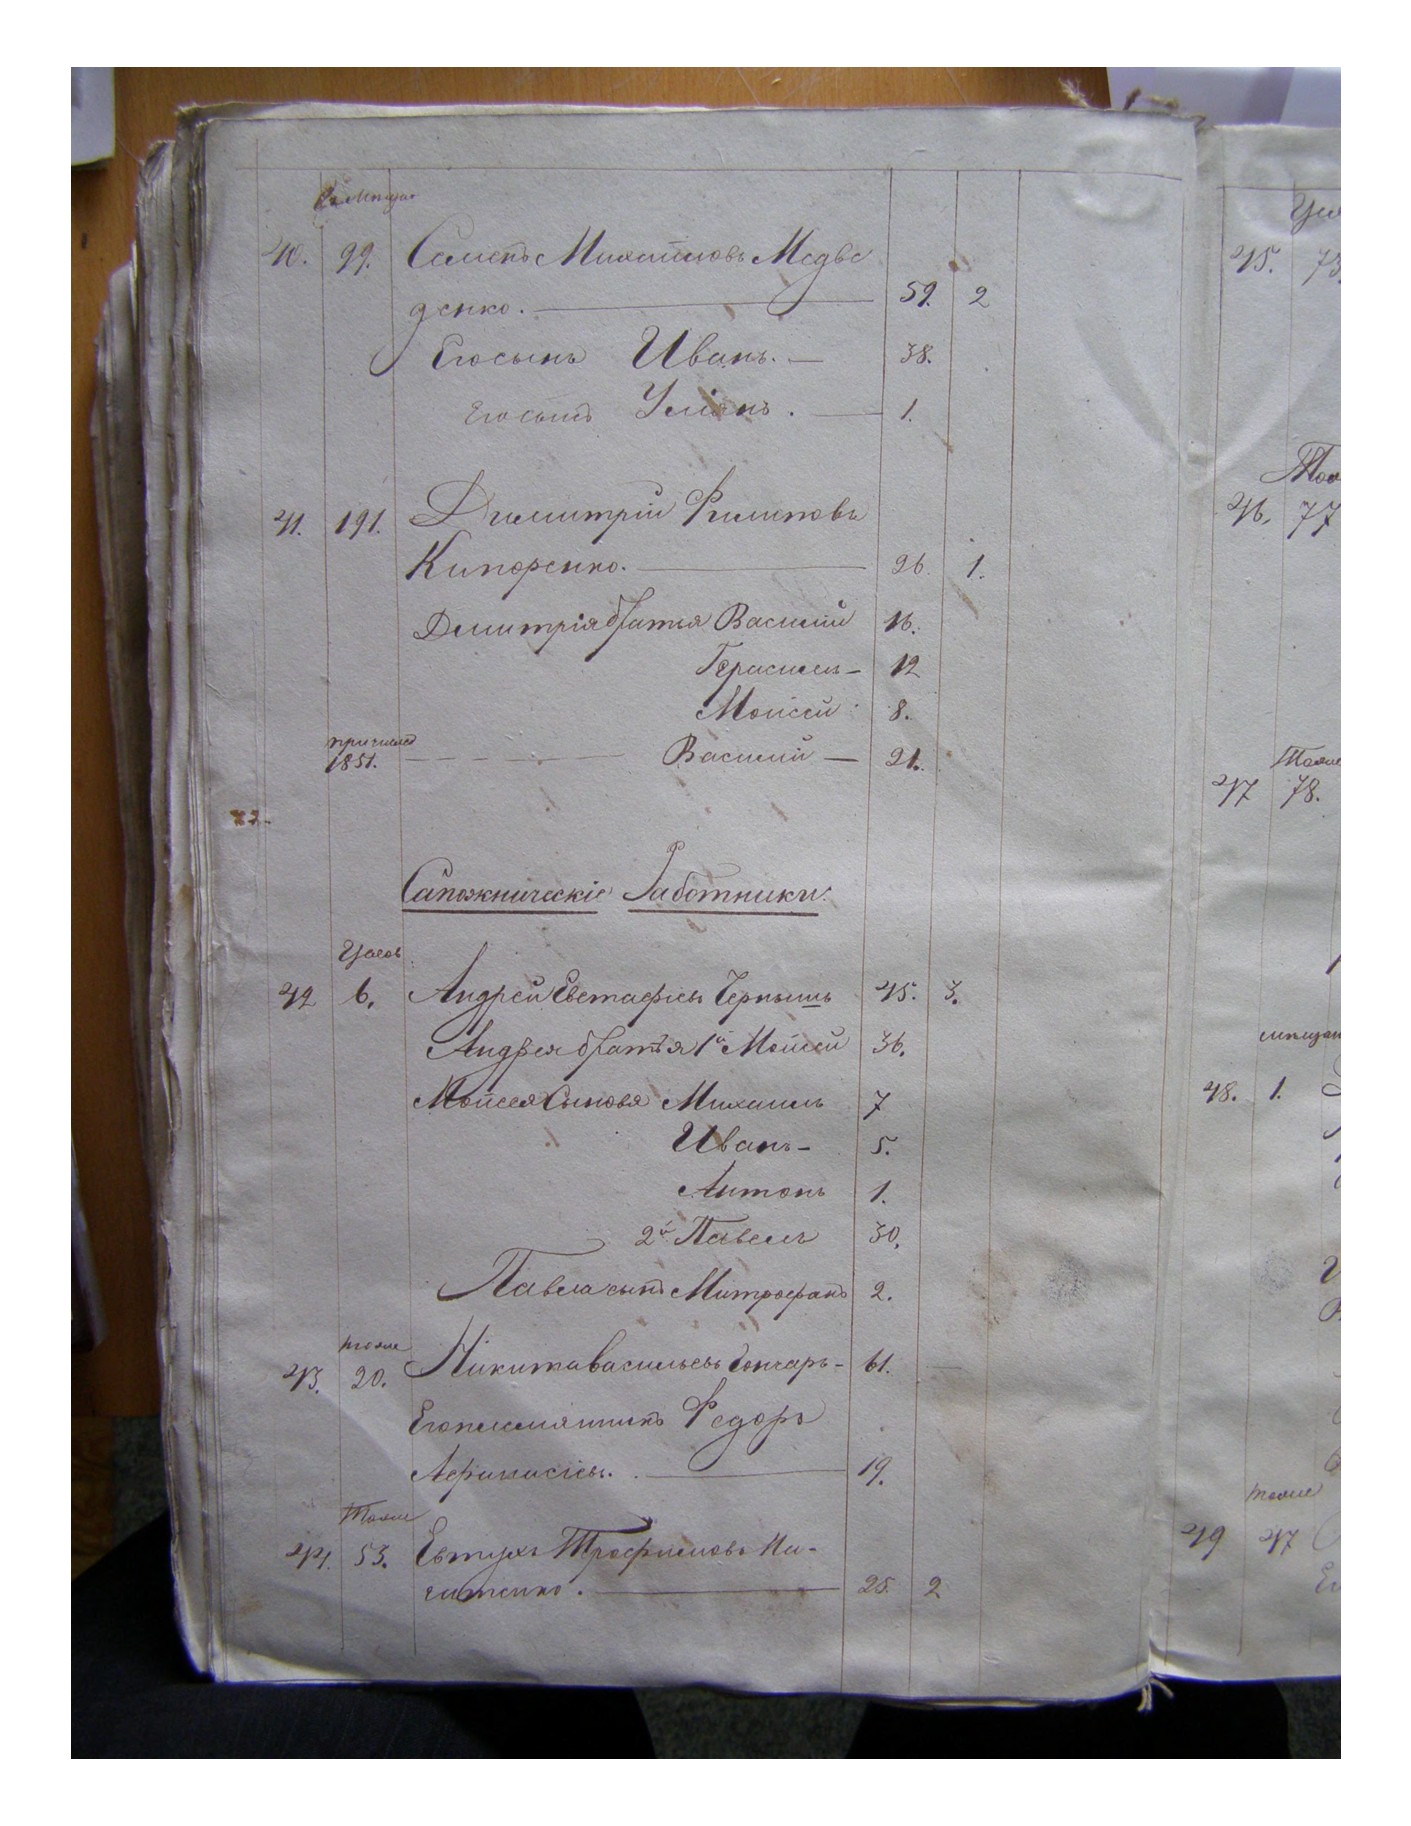 40. 99. Семенъ Михайловъ Медве
денко. 59. 2
Его сынъ Иванъ. 38.
Его сынъ Улiянъ. 1.
41. 191. Димитрій Филиповъ
Кипоренко. 26. 1.
Димитрія братья Василій 16.
Герасимъ 12
Моисей 8.
1851. Василій 21.
Сапожническіе Работники.
42 6. Андрей Евстафіевъ Чернышъ 45. 3.
Андрея братья 1й Моисей 36.
Моисея Сыновья Михаилъ 7
Иванъ 5.
Антонъ 1.
2й Павелъ 30.
Павла сынъ Митрофанъ 2.
тоже
43. 20. Никита Васильевъ Гончаръ 61.
Его племянникъ Федоръ
Афанасіевъ. 19.
Тоже
44. 53. Евтухъ Трофимовъ Ни-
читенко. 25. 2
45. 73.
46. 77
Тоже
47 78.
48. 1.
тоже
49 47